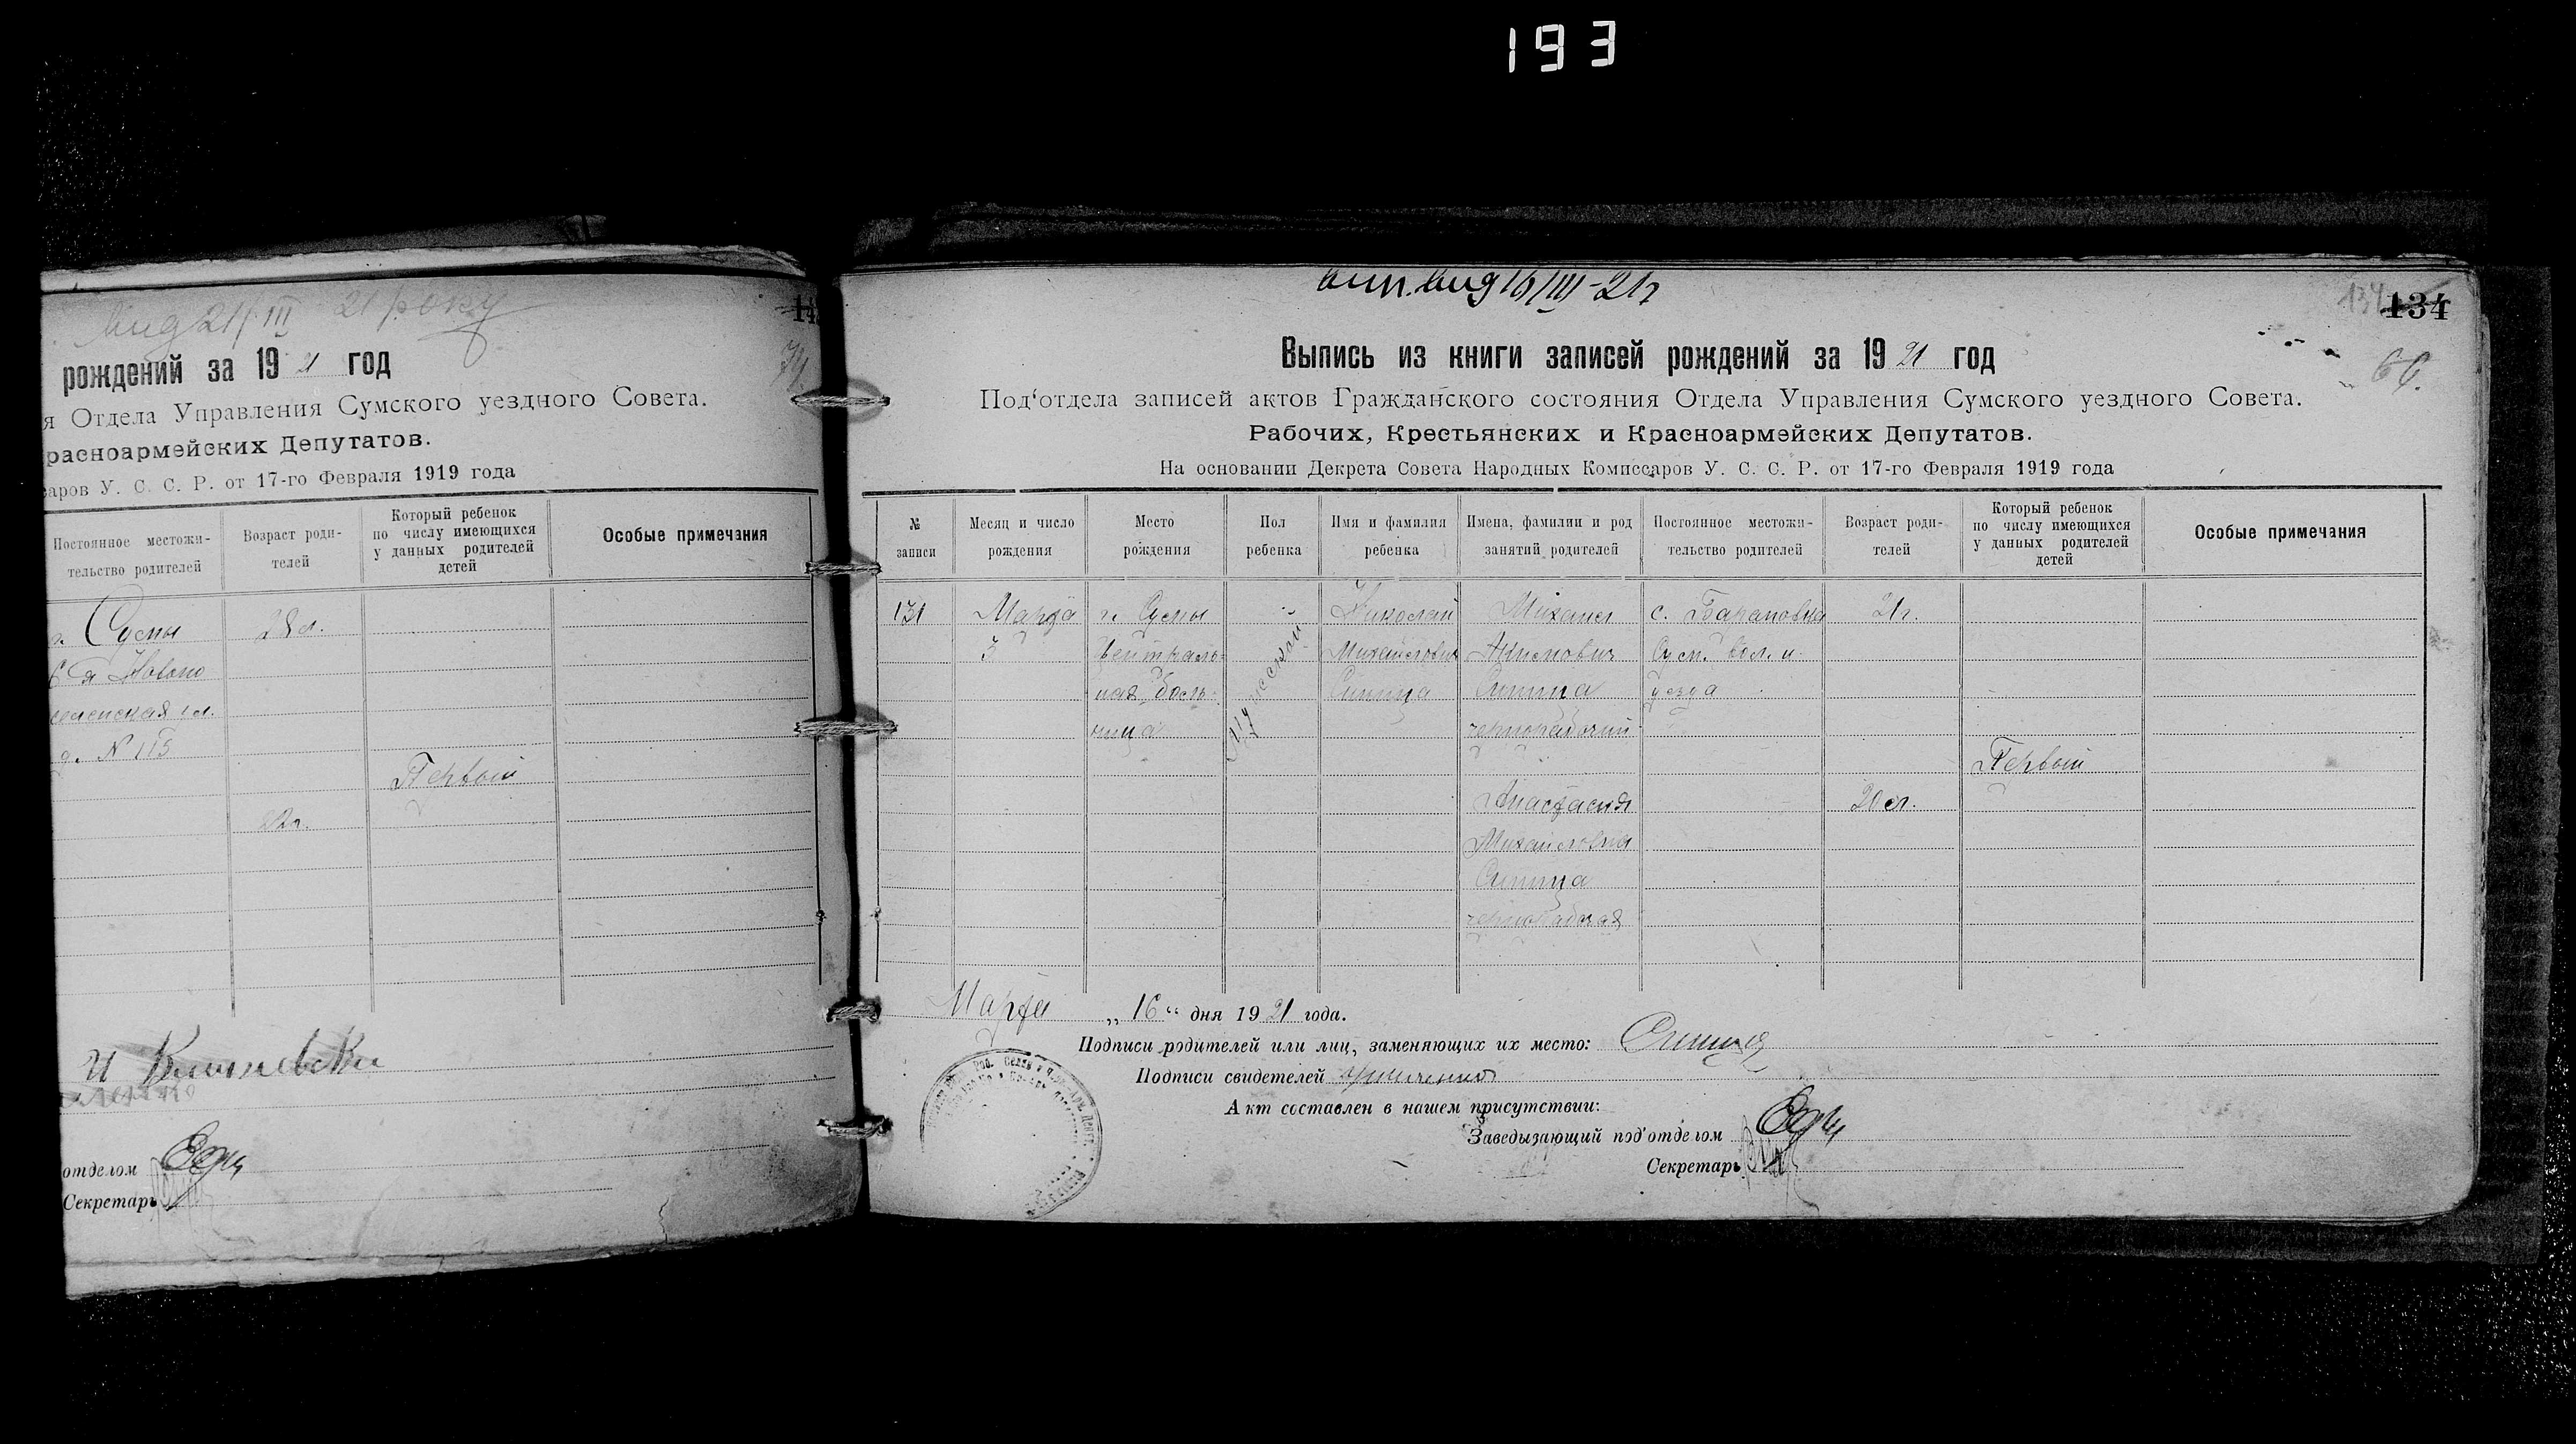 193
вид 21/III 21 року
рождений за 1921 год
74
я Отдела Управления Сумского уездного Совета.
расноармейских Депутатов.
аров У. С. С. Р. от 17-го Февраля 1919 года
Постоянное местожи-
тельство родителей
Возраст роди-
телей
Который ребенок
по числу имеющихся
у данных родителей
детей
Особые примечания
г. Сумы 28 л.
6-я Ново
д. №
Первый
22 г.
отделом
Секретарь
вид 16/III-21 г
134 134
66.
Выпись из книги записей рождений за 1921 год
Под'отдела записей актов Гражданского состояния Отдела Управления Сумского уездного Совета.
Рабочих, Крестьянских и Красноармейских Депутатов.
На основании Декрета Совета Народных Комиссаров У. С. С. Р. от 17-го Февраля 1919 года
№
записи
Месяц и число
рождения
Место
рождения
Пол
ребенка
Имя и фамилия
ребенка
Имена, фамилии и род
занятий родителей
Постоянное местожи-
тельство родителей
Возраст роди-
телей
Который ребенок
по числу имеющихся
у данных родителей
детей
Особые примечания
131
Марта
3
г. Сумы
Централь-
ная боль-
ница
Мужской
Николай
Михайлович
Синица
Михаил
Акимович
Синица
чернорабочий
Анастасия
Михайловна
Синица
чернорабочая
с. Барановка
Сум. вол. и
уезда
21 г.
20 л.
Первый
Марта „16“ дня 1921 года.
Подписи родителей или лиц, заменяющих их место: Синица
Подписи свидетелей
Акт составлен в нашем присутствии:
Заведывающий под'отделом
Секретарь